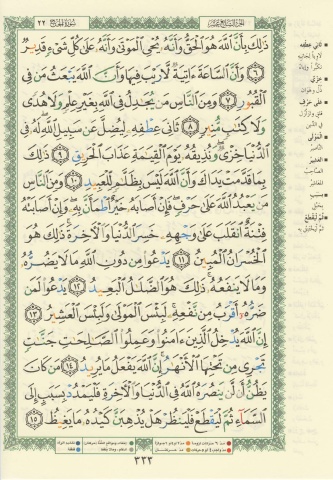 الجزء السابع عشر
سورة الحج ٢٢
ذَٰلِكَ بِأَنَّ ٱللَّهَ هُوَ ٱلْحَقُّ وَأَنَّهُۥ يُحْيِ ٱلْمَوْتَىٰ وَأَنَّهُۥ عَلَىٰ كُلِّ شَىْءٍ قَدِيرٌ
﴿٦﴾ وَأَنَّ ٱلسَّاعَةَ ءَاتِيَةٌ لَّا رَيْبَ فِيهَا وَأَنَّ ٱللَّهَ يَبْعَثُ مَن فِى
ٱلْقُبُورِ ﴿٧﴾ وَمِنَ ٱلنَّاسِ مَن يُجَٰدِلُ فِى ٱللَّهِ بِغَيْرِ عِلْمٍ وَلَا هُدًى
وَلَا كِتَٰبٍ مُّنِيرٍ ﴿٨﴾ ثَانِىَ عِطْفِهِۦ لِيُضِلَّ عَن سَبِيلِ ٱللَّهِ لَهُۥ فِى
ٱلدُّنْيَا خِزْىٌ وَنُذِيقُهُۥ يَوْمَ ٱلْقِيَٰمَةِ عَذَابَ ٱلْحَرِيقِ ﴿٩﴾ ذَٰلِكَ
بِمَا قَدَّمَتْ يَدَاكَ وَأَنَّ ٱللَّهَ لَيْسَ بِظَلَّٰمٍ لِّلْعَبِيدِ ﴿١٠﴾ وَمِنَ ٱلنَّاسِ
مَن يَعْبُدُ ٱللَّهَ عَلَىٰ حَرْفٍ فَإِنْ أَصَابَهُۥ خَيْرٌ ٱطْمَأَنَّ بِهِۦ وَإِنْ أَصَابَتْهُ
فِتْنَةٌ ٱنقَلَبَ عَلَىٰ وَجْهِهِۦ خَسِرَ ٱلدُّنْيَا وَٱلْءَاخِرَةَ ذَٰلِكَ هُوَ
ٱلْخُسْرَانُ ٱلْمُبِينُ ﴿١١﴾ يَدْعُوا۟ مِن دُونِ ٱللَّهِ مَا لَا يَضُرُّهُۥ
وَمَا لَا يَنفَعُهُۥ ذَٰلِكَ هُوَ ٱلضَّلَٰلُ ٱلْبَعِيدُ ﴿١٢﴾ يَدْعُوا۟ لَمَن
ضَرُّهُۥٓ أَقْرَبُ مِن نَّفْعِهِۦ لَبِئْسَ ٱلْمَوْلَىٰ وَلَبِئْسَ ٱلْعَشِيرُ ﴿١٣﴾
إِنَّ ٱللَّهَ يُدْخِلُ ٱلَّذِينَ ءَامَنُوا۟ وَعَمِلُوا۟ ٱلصَّٰلِحَٰتِ جَنَّٰتٍ
تَجْرِى مِن تَحْتِهَا ٱلْأَنْهَٰرُ إِنَّ ٱللَّهَ يَفْعَلُ مَا يُرِيدُ ﴿١٤﴾ مَن كَانَ
يَظُنُّ أَن لَّن يَنصُرَهُ ٱللَّهُ فِى ٱلدُّنْيَا وَٱلْءَاخِرَةِ فَلْيَمْدُدْ بِسَبَبٍ إِلَى
ٱلسَّمَآءِ ثُمَّ لْيَقْطَعْ فَلْيَنظُرْ هَلْ يُذْهِبَنَّ كَيْدُهُۥ مَا يَغِيظُ ﴿١٥﴾
ثاني عطفه
لاوياً لجانبه
تكبراً وإباءً
خزي
ذل وهوان
على حرف
المولى
الناصر
العشير
الصاحب
المعاشر
بسبب
بحبل
ثم ليقطع
٣٣٣